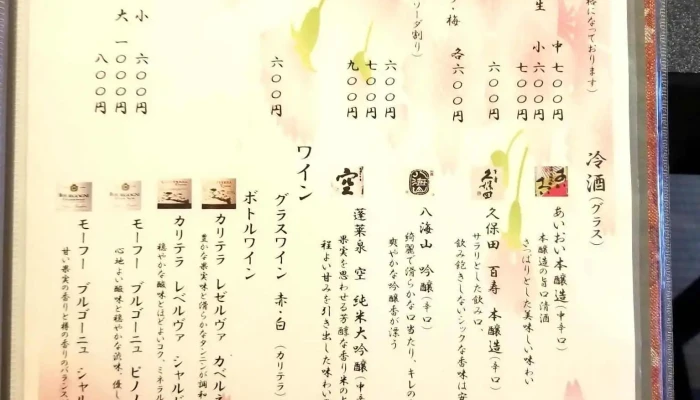 格になっております）
生 中 七〇〇円
小 六〇〇円
七〇〇円
六〇〇円
・梅 各 六〇〇円
ソーダ割り）
六〇〇円
七〇〇円
九〇〇円
六〇〇円
小 六〇〇円
大 一〇〇〇円
八〇〇円
冷酒（グラス）
あいおい本醸造（中辛口）
本醸造の旨口清酒
さっぱりとした美味しい味わい
久保田 百寿 本醸造（辛口）
サラリとした飲み口。
飲み飽きしないシックな香味は
八海山 吟醸（辛口）
綺麗で滑らかな口当たり、キレの
爽やかな吟醸香が漂う
空
蓬莱泉 空 純米大吟醸（中
果実を思わせる芳醇な香り米の
程よい甘みを引き出した味わい
ワイン
グラスワイン 赤・白 （カリテラ）
ボトルワイン
カリテラ レゼルヴァ カベルネ
豊かな果実味と滑らかなタンニンが調和
カリテラ レゼルヴァ シャルド
穏やかな酸味とほどよいコク、ミネラル
モーフー ブルゴーニュ ピノ
心地よい酸味と穏やかな渋味、優し
モーフー ブルゴーニュ シャル
甘い果実の香りと樽の香りのバランス